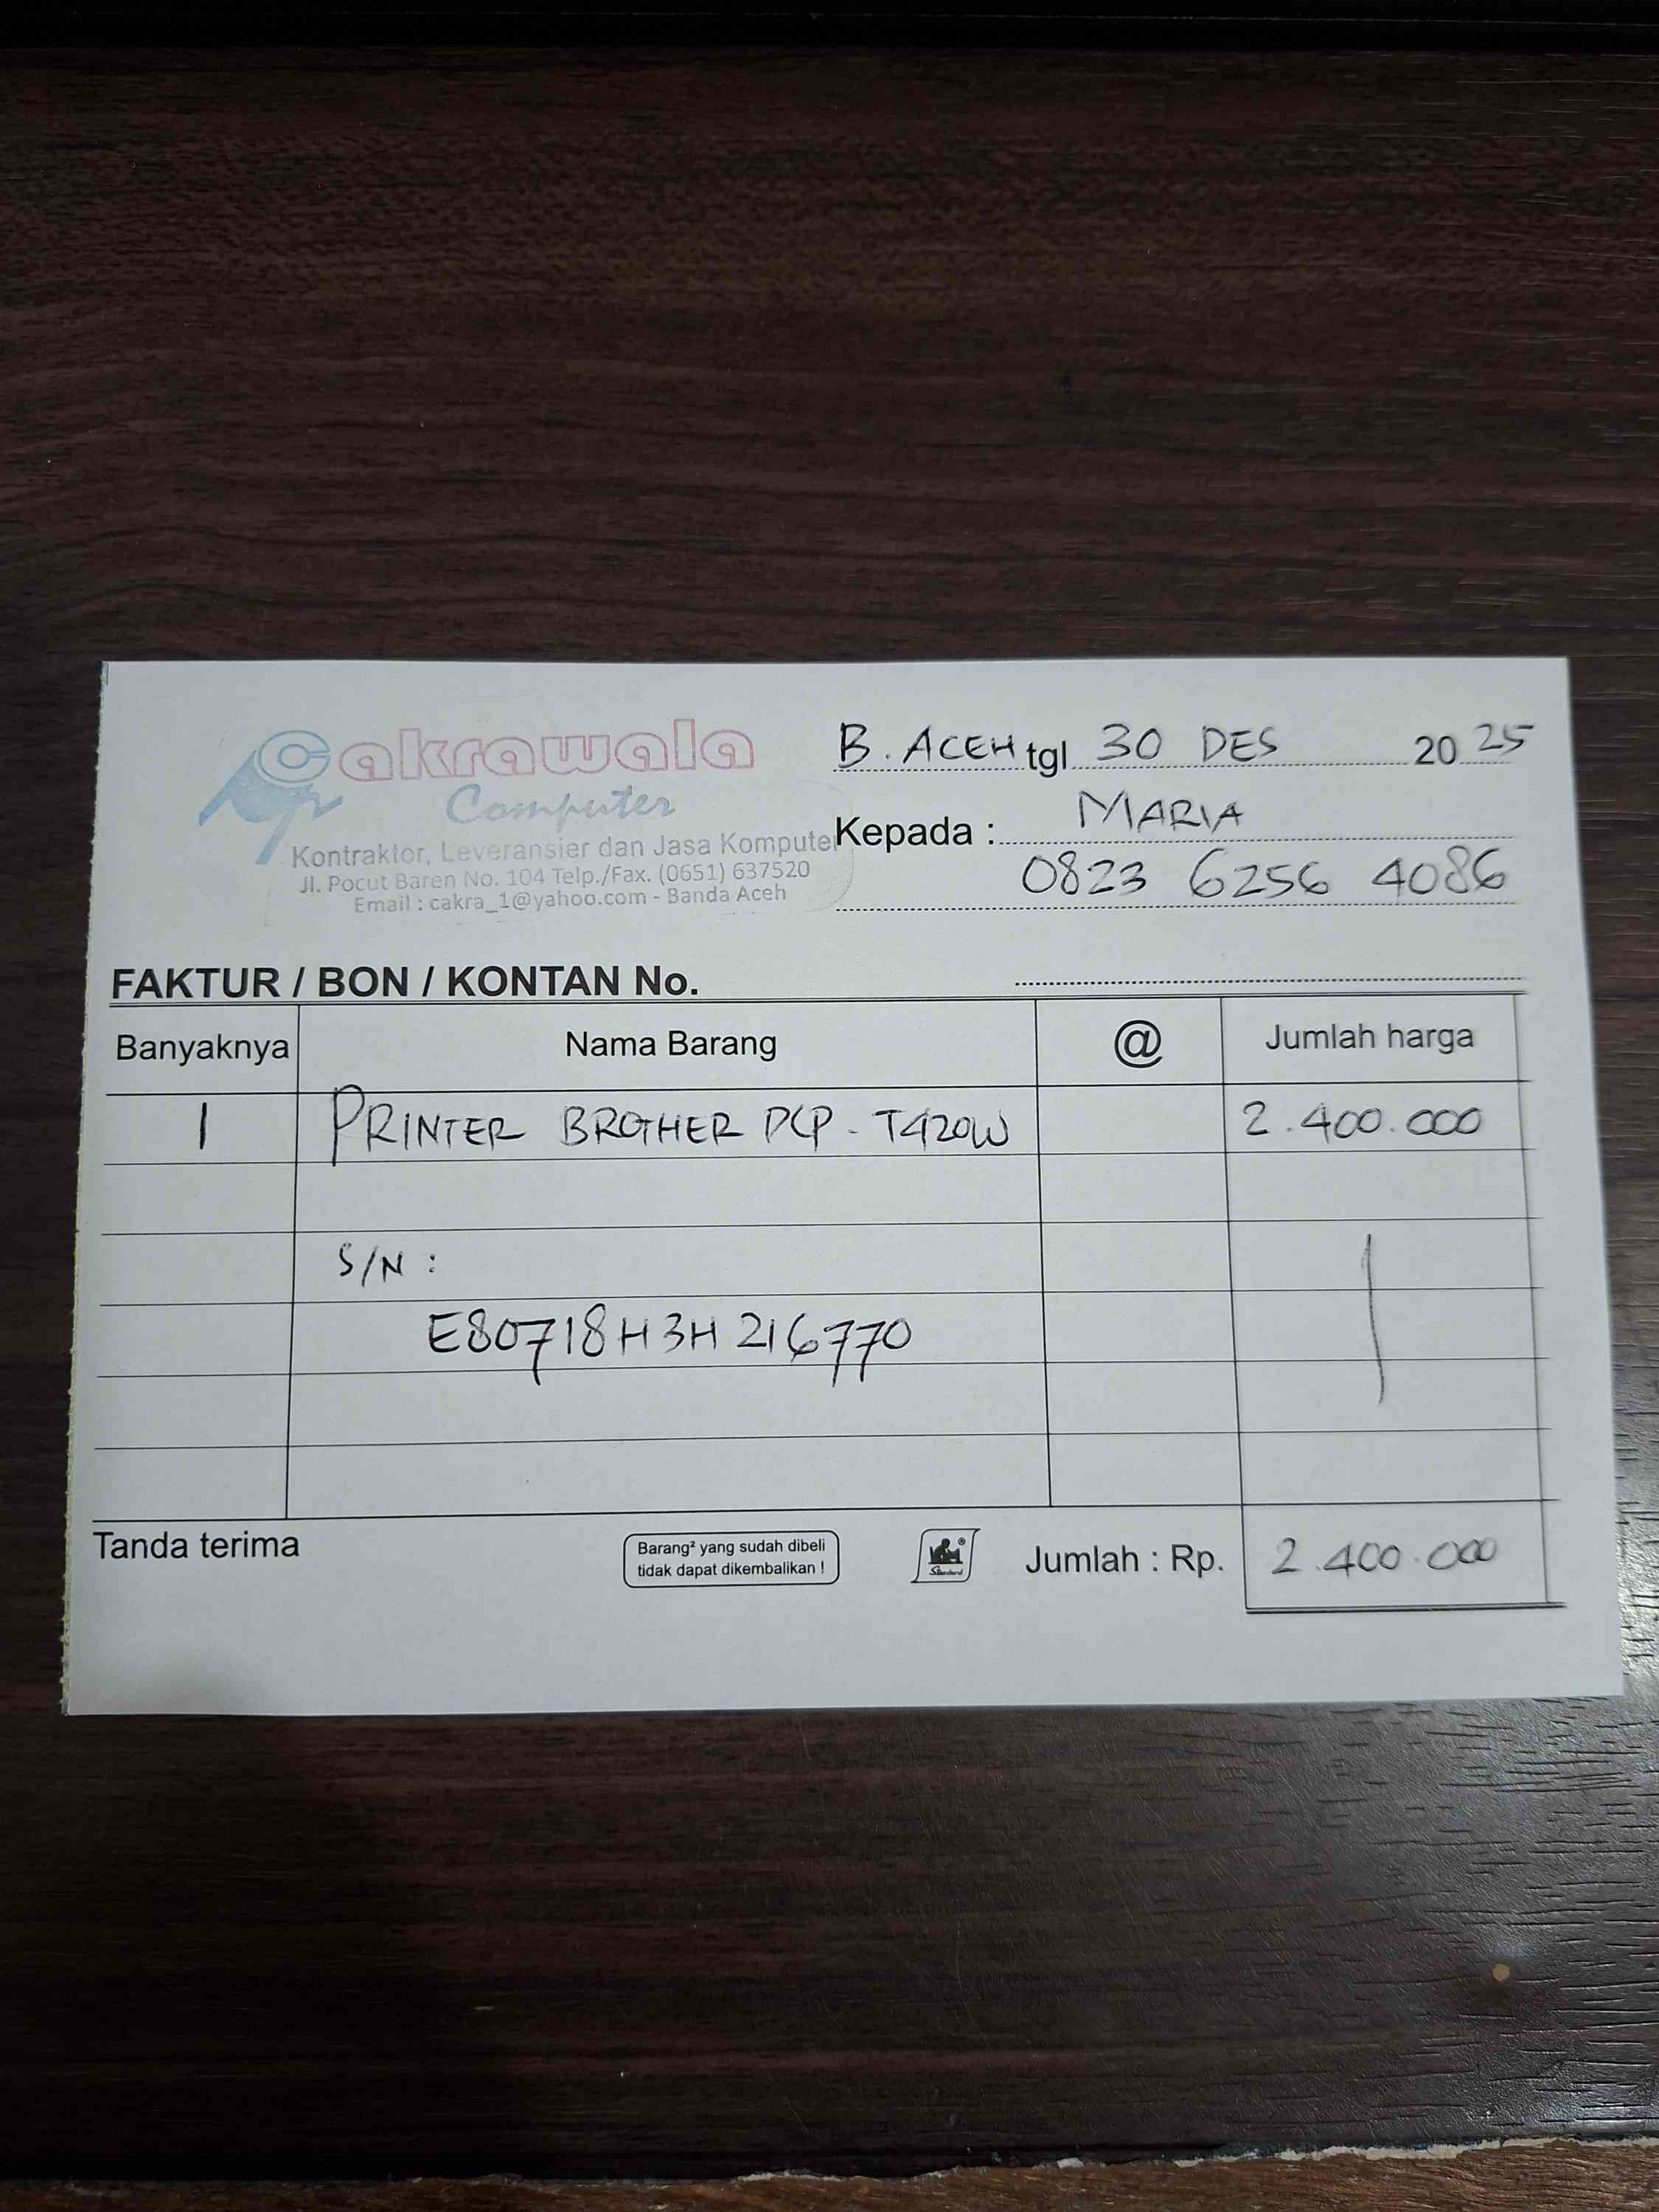 Cakrawala
Computer
Kontraktor, Leveransier dan Jasa Komputer
Jl. Pocut Baren No. 104 Telp./Fax. (0651) 637520
Email : cakra_1@yahoo.com - Banda Aceh
B. ACEH tgl. 30 DES 2025
Kepada : MARIA
0823 6256 4086
FAKTUR / BON / KONTAN No.
Banyaknya Nama Barang @ Jumlah harga
1 PRINTER BROTHER DCP - T420W 2.400.000
S/N :
E80718H3H216770
Tanda terima
Barang² yang sudah dibeli
tidak dapat dikembalikan !
Standard
Jumlah : Rp. 2.400.000